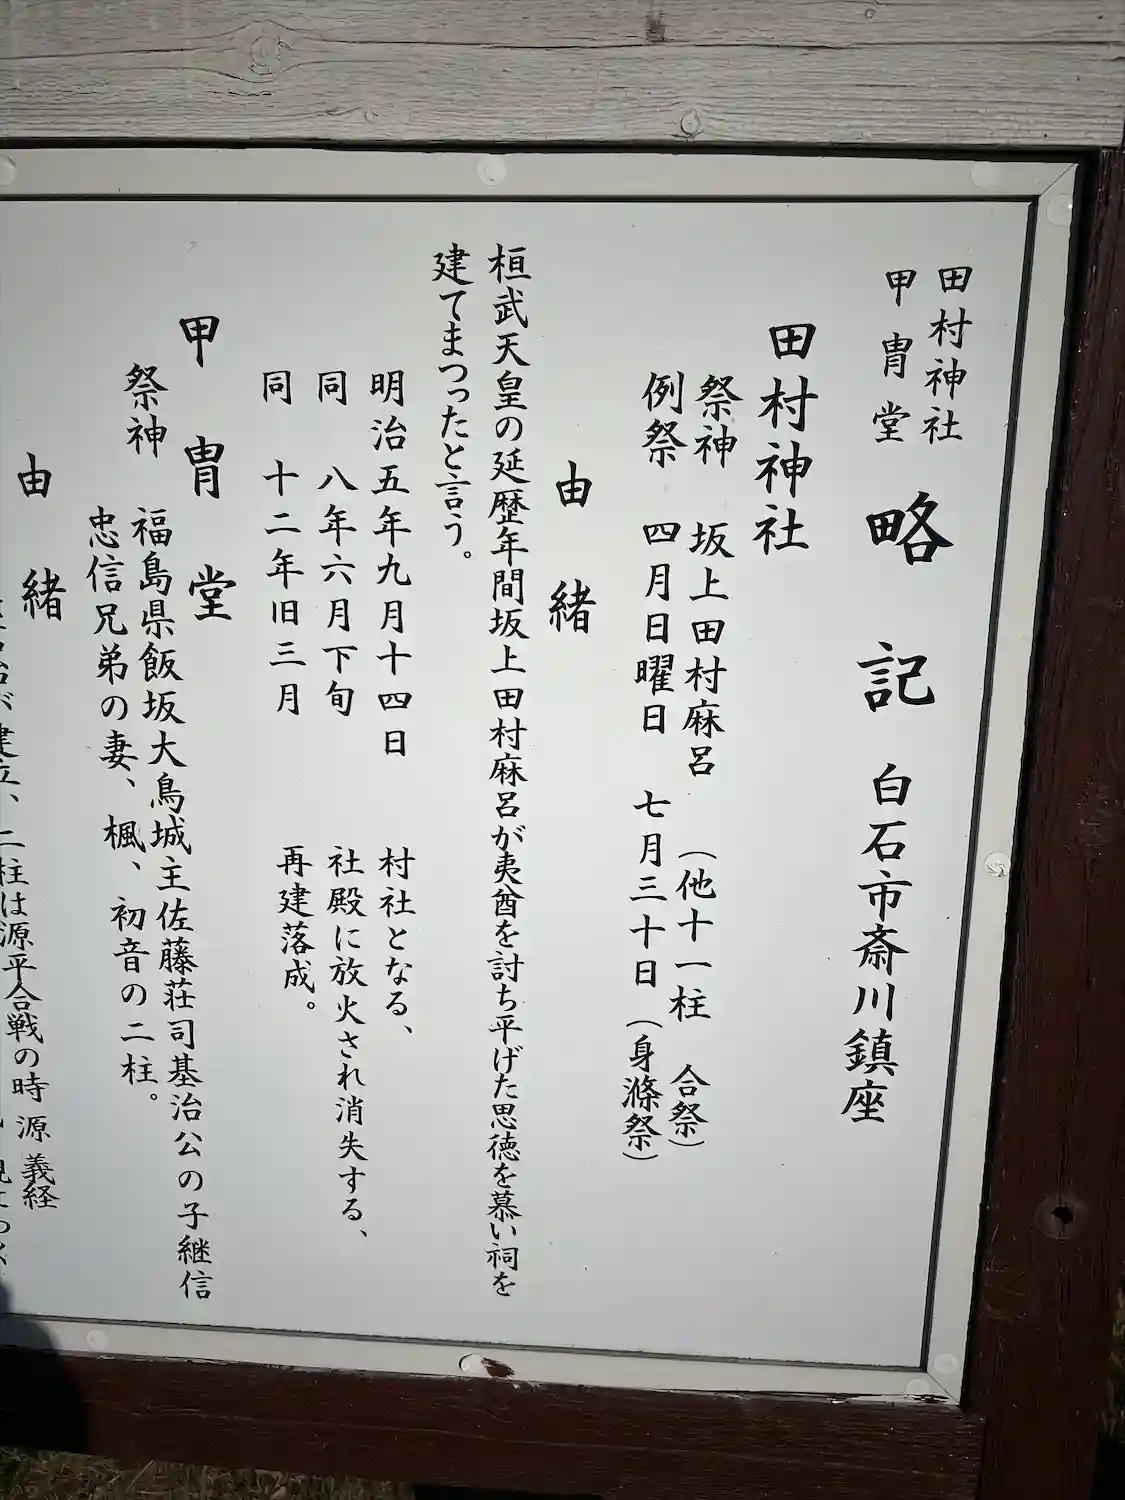 田村神社
甲冑堂
略記 白石市斎川鎮座
田村神社
祭神 坂上田村麻呂 (他十一柱 合祭)
例祭 四月日曜日 七月三十日(身滌祭)
由緒
桓武天皇の延歴年間坂上田村麻呂が夷酋を討ち平げた思徳を慕い祠を
建てまつったと言う。
明治五年九月十四日 村社となる、
同 八年六月下旬 社殿に放火され消失する、
同 十二年旧三月 再建落成。
甲冑堂
祭神 福島県飯坂大鳥城主佐藤荘司基治公の子継信
忠信兄弟の妻、楓、初音の二柱。
由緒
が建立、二柱は源平合戦の時 源 義経